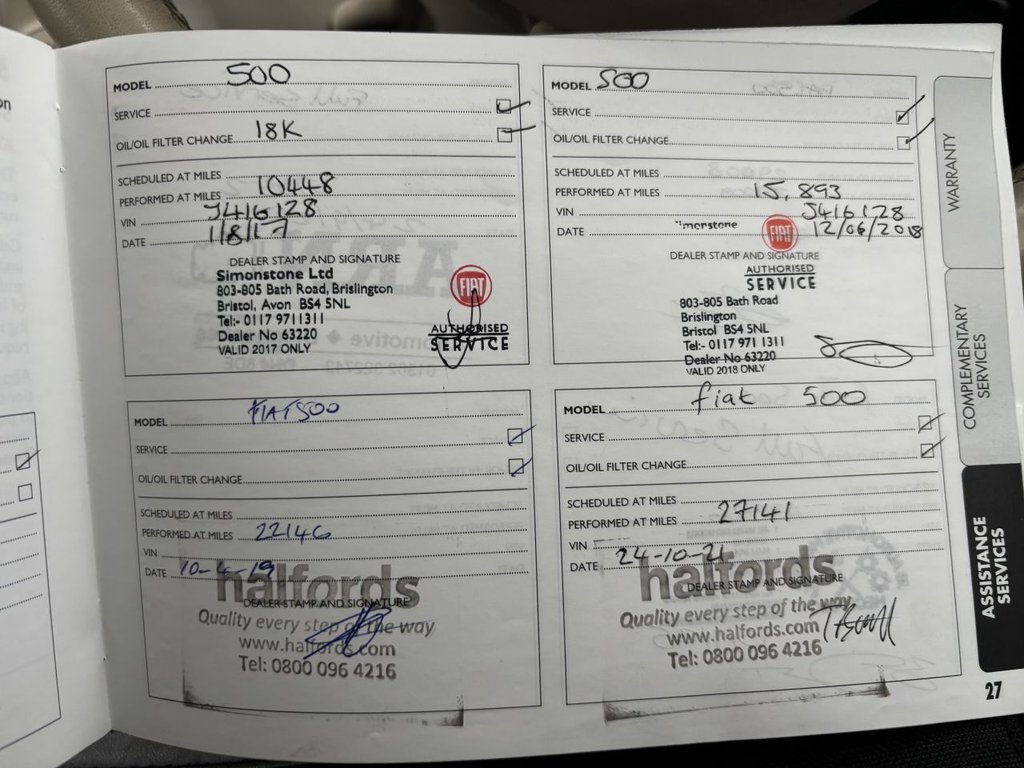 MODEL 500
SERVICE
OIL/OIL FILTER CHANGE 18K
SCHEDULED AT MILES
PERFORMED AT MILES 10448
VIN J416128
DATE 1/8/17
DEALER STAMP AND SIGNATURE
Simonstone Ltd
803-805 Bath Road, Brislington
Bristol, Avon BS4 5NL
Tel:- 0117 9711311
Dealer No 63220
VALID 2017 ONLY
FIAT
AUTHORISED
SERVICE
MODEL 500
SERVICE
OIL/OIL FILTER CHANGE
SCHEDULED AT MILES
PERFORMED AT MILES 15,893
VIN J416128
DATE 12/06/2018
FIAT
DEALER STAMP AND SIGNATURE
AUTHORISED
SERVICE
803-805 Bath Road
Brislington
Bristol BS4 5NL
Tel:- 0117 971 1311
Dealer No 63220
VALID 2018 ONLY
MODEL FIAT500
SERVICE
OIL/OIL FILTER CHANGE
SCHEDULED AT MILES
PERFORMED AT MILES 22146
VIN
DATE 10-4-19
halfords
DEALER STAMP AND SIGNATURE
Quality every step of the way
www.halfords.com
Tel: 0800 096 4216
MODEL fiat 500
SERVICE
OIL/OIL FILTER CHANGE
SCHEDULED AT MILES
PERFORMED AT MILES 27141
VIN
DATE 24-10-21
halfords
DEALER STAMP AND SIGNATURE
Quality every step of the way
www.halfords.com
Tel: 0800 096 4216
WARRANTY
COMPLEMENTARY
SERVICES
ASSISTANCE
SERVICES
27